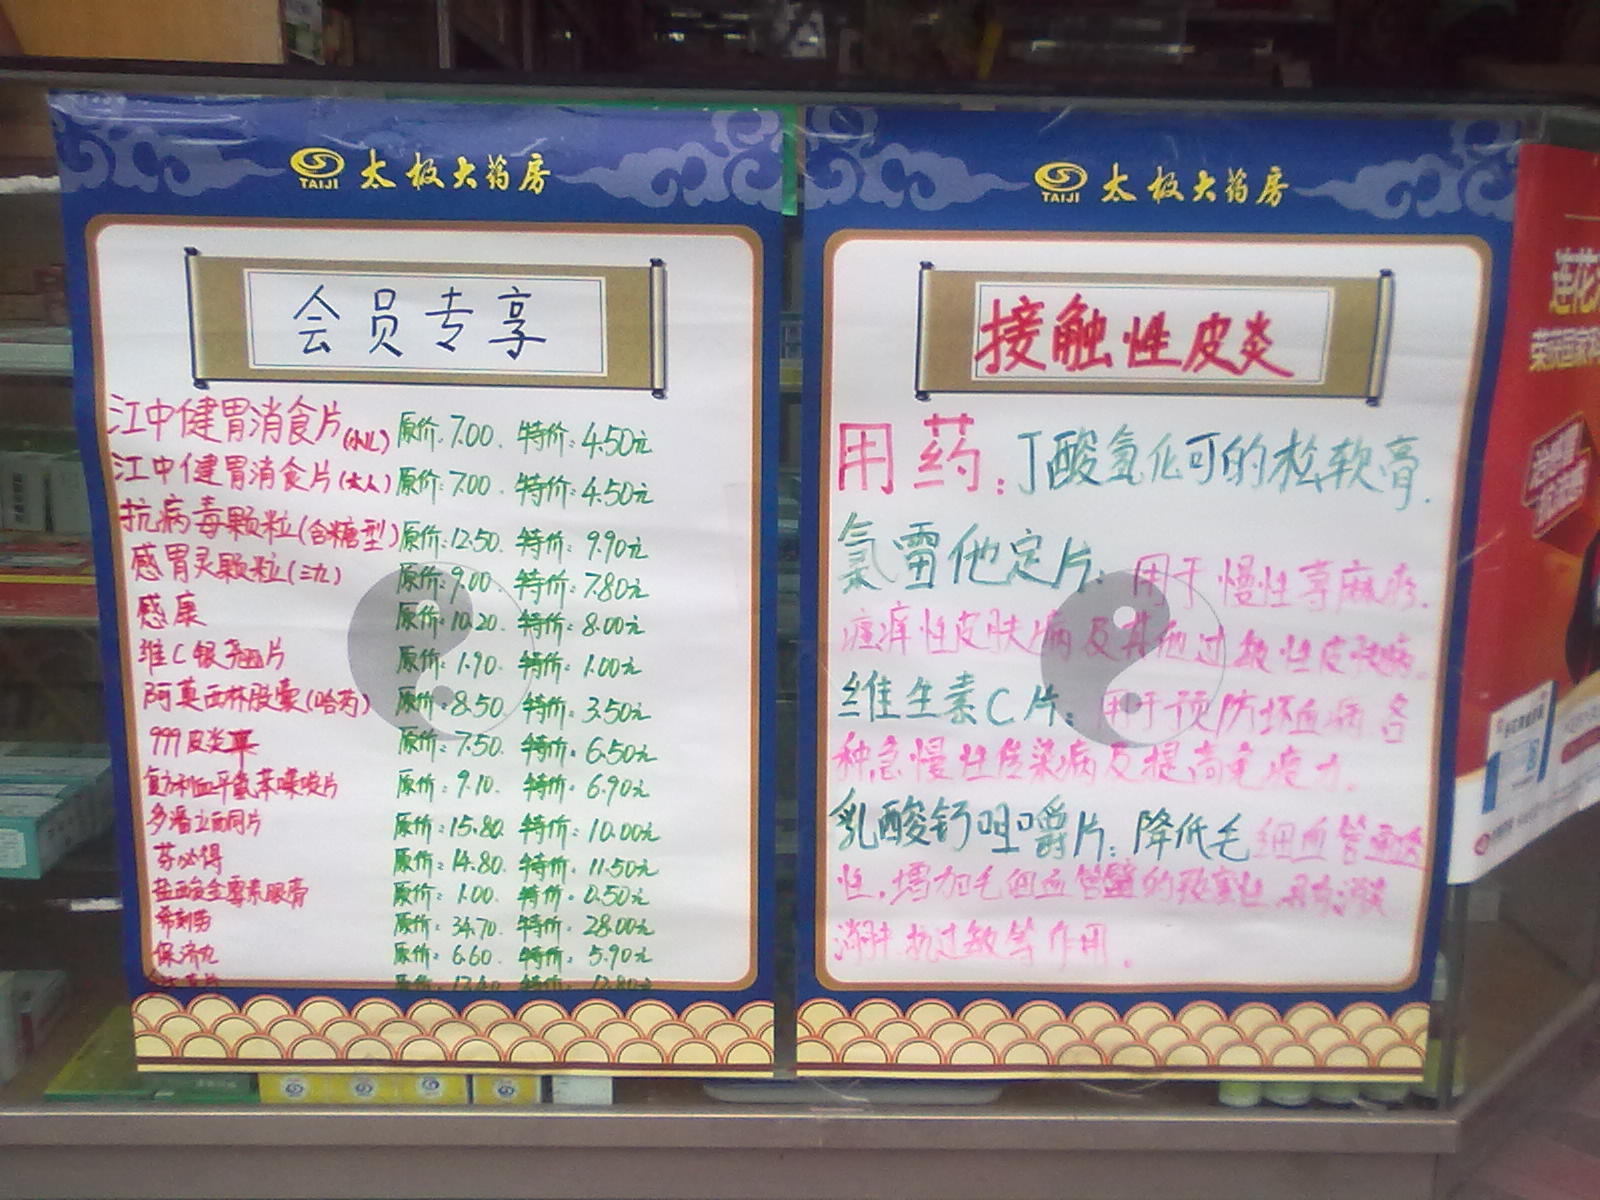 TAIJI 太极大药房
会员专享
江中健胃消食片(小儿) 原价:7.00. 特价:4.50元
江中健胃消食片(大人) 原价:7.00. 特价:4.50元
抗病毒颗粒(含糖型) 原价:12.50. 特价:9.90元
感冒灵颗粒(三九) 原价:9.00 特价:7.80元
感康 原价:10.20. 特价:8.00元
维C银翘片 原价:1.90. 特价:1.00元
阿莫西林胶囊(哈药) 原价:8.50. 特价:3.50元
999皮炎平 原价:7.50. 特价:6.50元
复方利血平氨苯喋啶片 原价:9.10. 特价:6.90元
多潘立酮片 原价:15.80. 特价:10.00元
芬必得 原价:14.80. 特价:11.50元
盐酸金霉素眼膏 原价:1.00. 特价:0.50元
希刻劳 原价:34.70. 特价:28.00元
保济丸 原价:6.60. 特价:5.90元
TAIJI 太极大药房
接触性皮炎
用药:丁酸氢化可的松软膏.
氯雷他定片:用于慢性荨麻疹.
瘙痒性皮肤病及其他过敏性皮肤病.
维生素C片:用于预防坏血病各
种急慢性传染病及提高免疫力.
乳酸钙咀嚼片:降低毛细血管通透
性.增加毛细血管壁的致密性.具有消炎
消肿.抗过敏等作用.